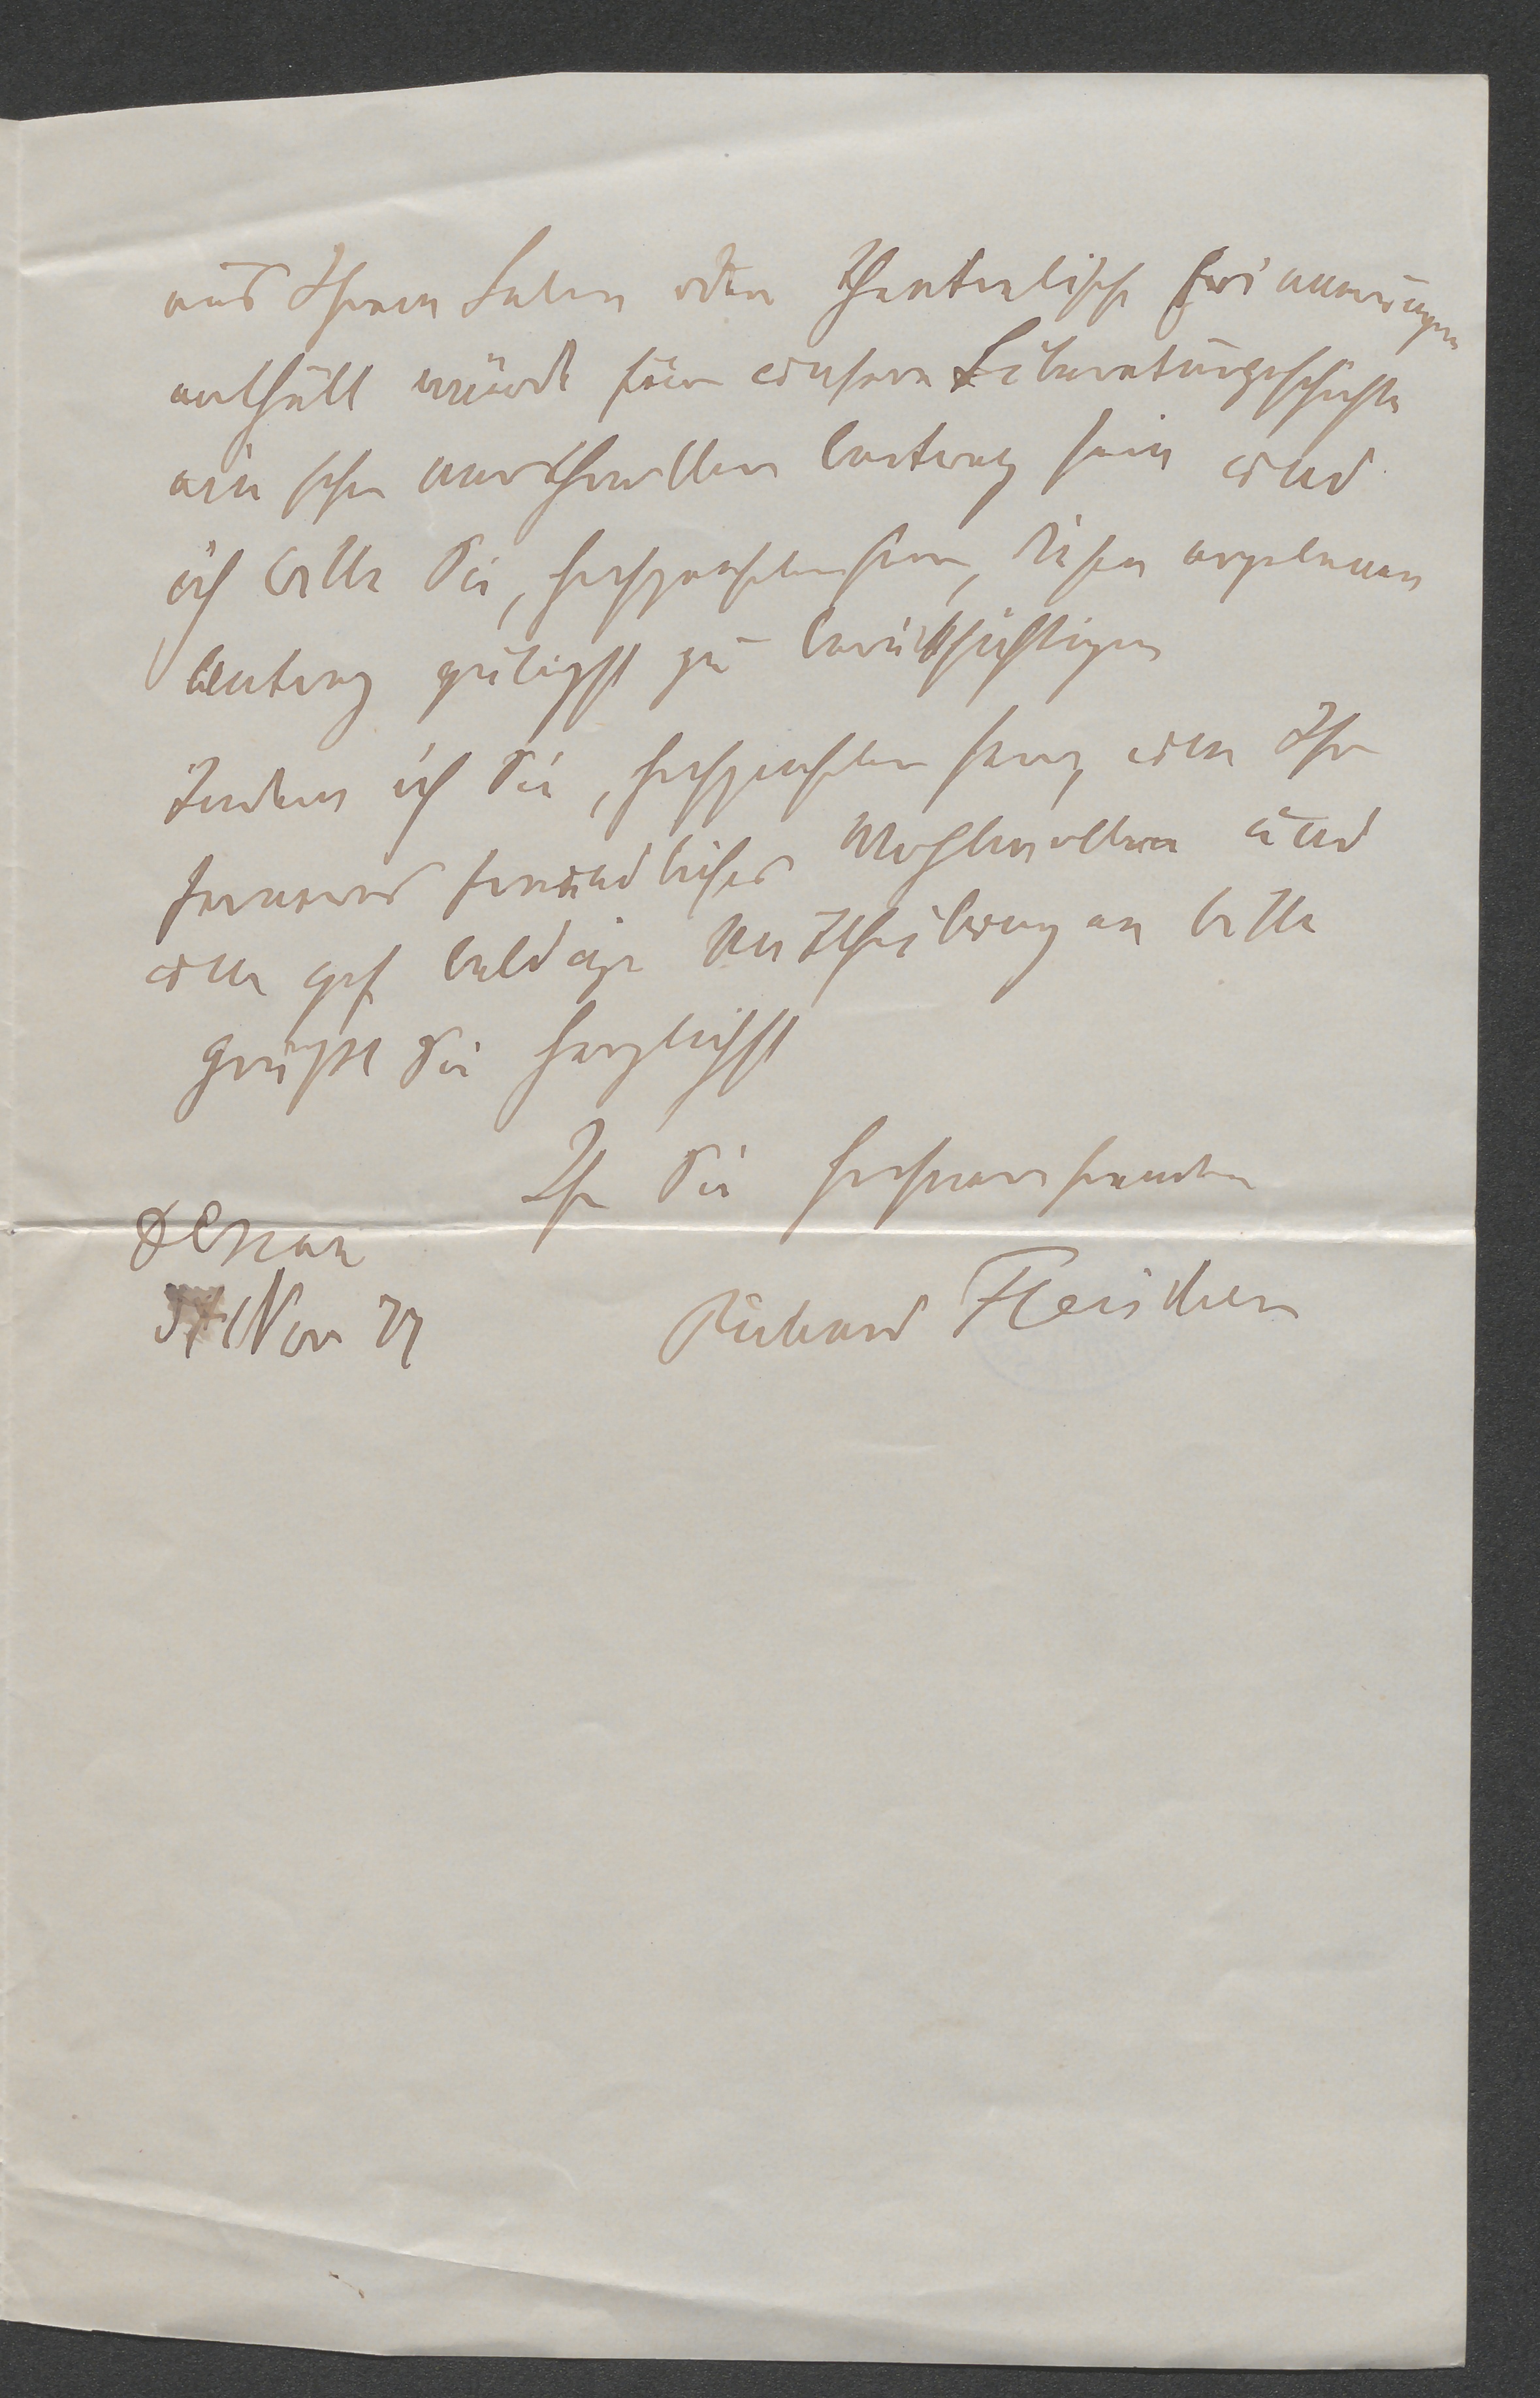 aus Ihrem Leben oder theatralische Erinnerungen
enthält würde für unsere Literaturgeschichte
ein sehr werthvoller Beitrag sein und
ich bitte Sie, hochgeehrter Herr, diesen ergebenen
Antrag gütigst zu berücksichtigen
Indem ich Sie, hochgeehrter Herr, um Ihr
ferneres freundliches Wohlwollen und
um gef baldige Mittheilung an bitte
grüßt Sie herzlichst
Ihr Sie hochverehrender
Dessau
Nov 77
Richard Fleischer